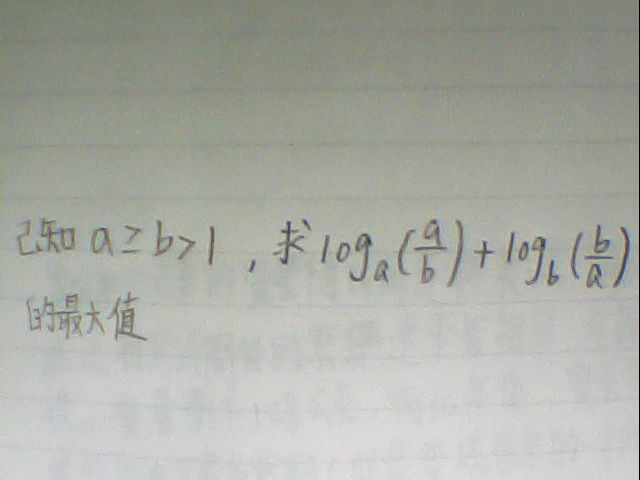 已知 a≥b>1，求 log_a(a/b)+log_b(b/a)
的最大值